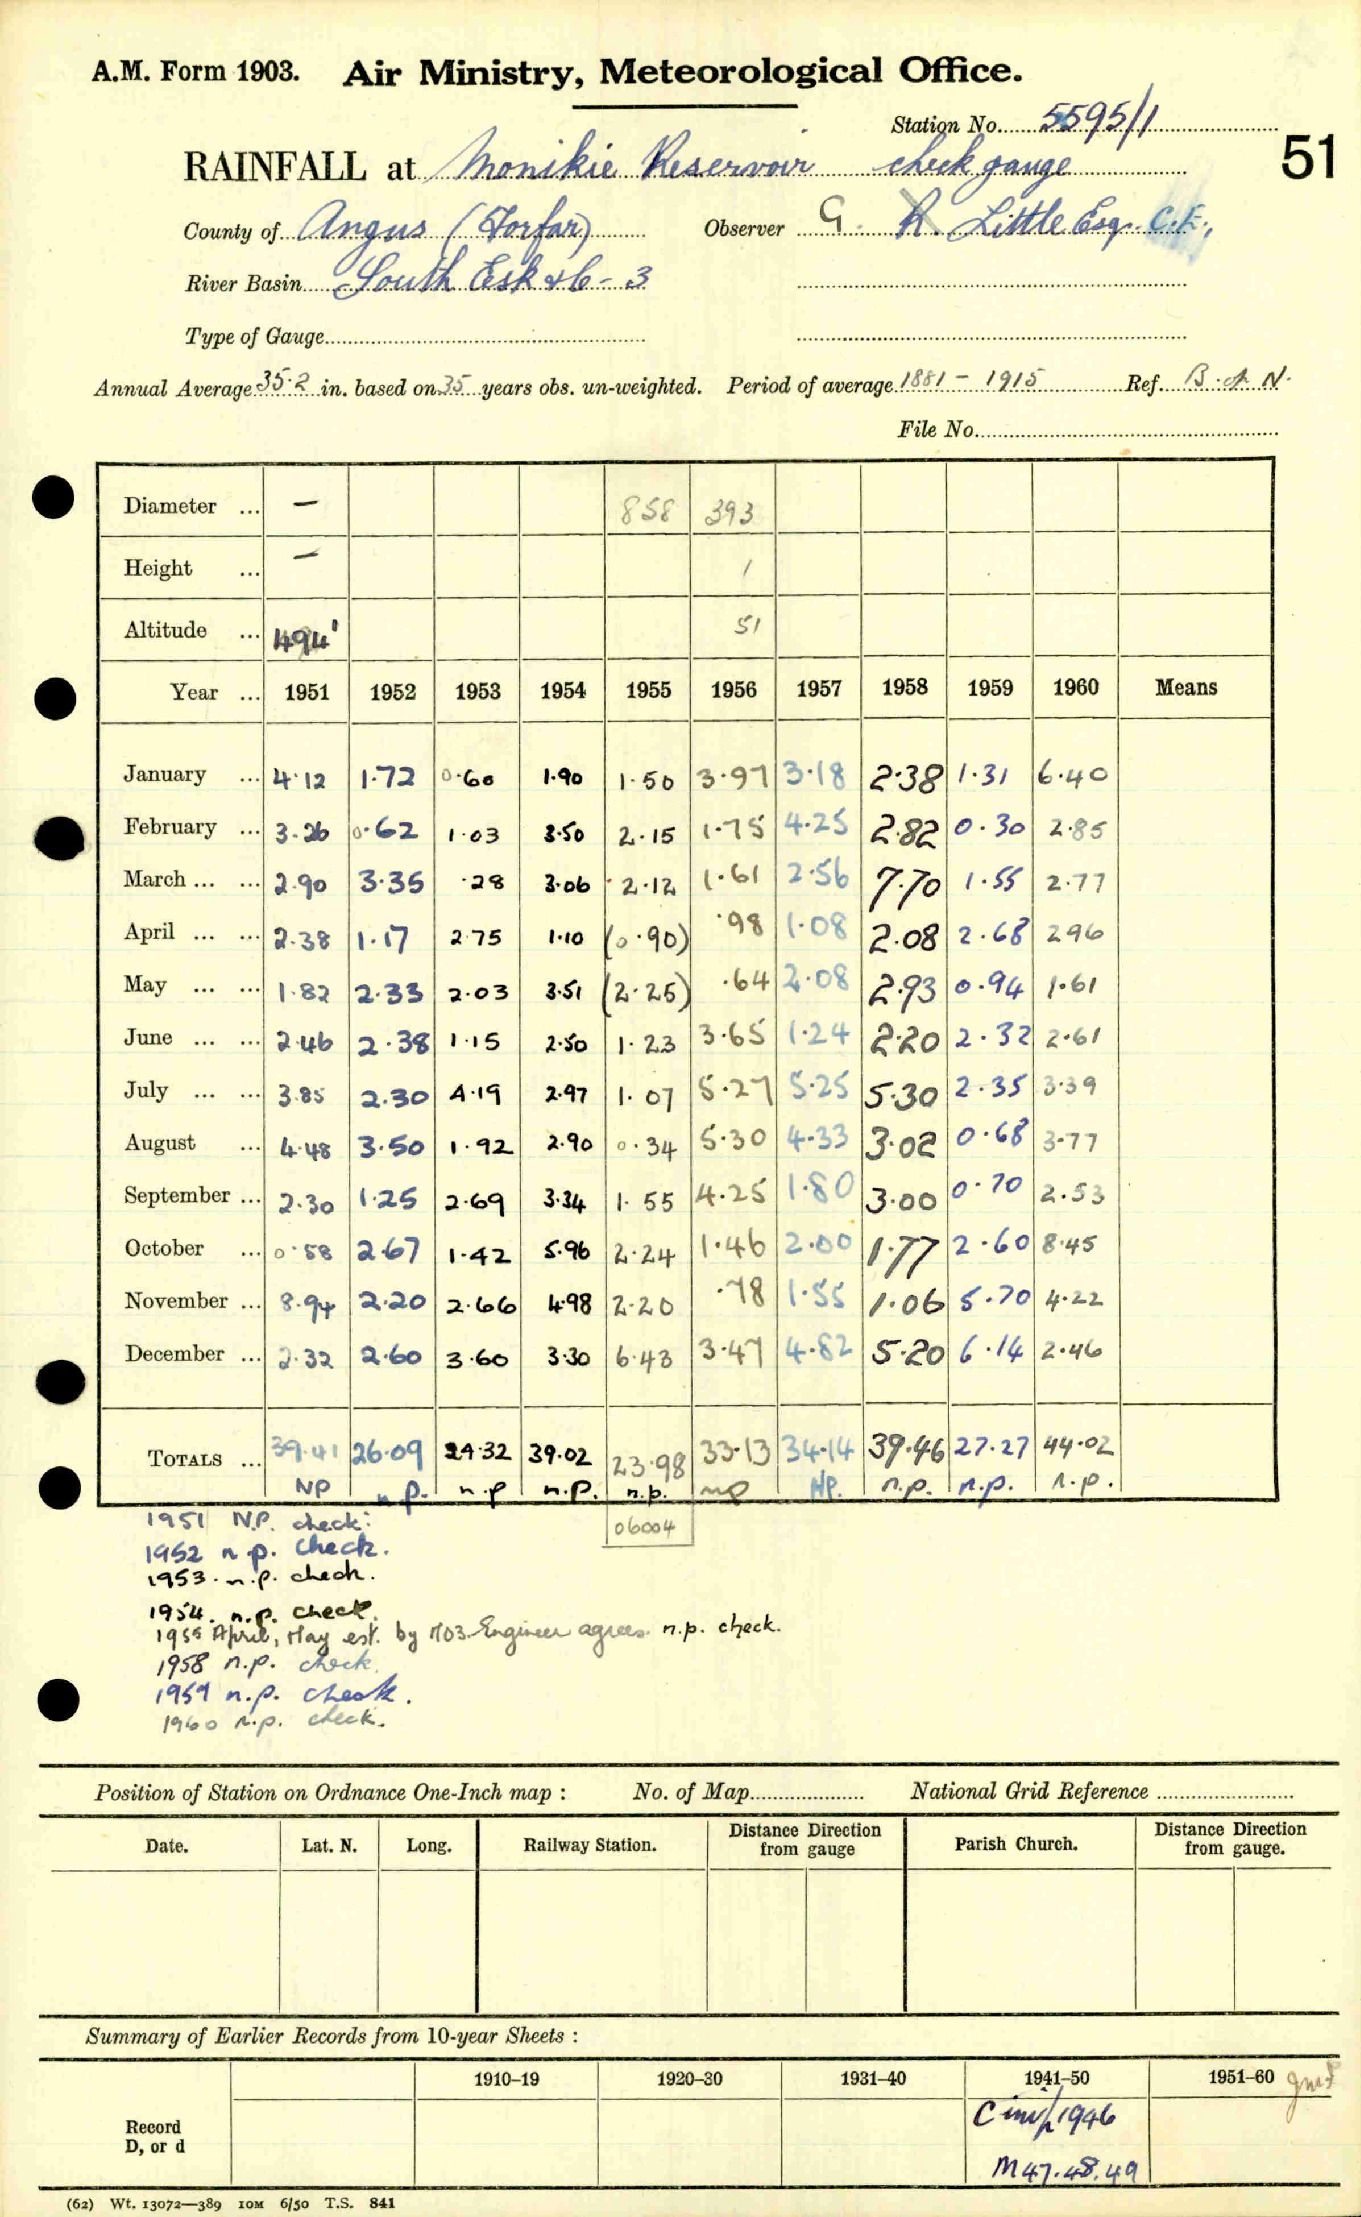 A.M. Form 1903. Air Ministry, Meteorological Office.
Station No. 5595/1
51
RAINFALL at Monikie Reservoir check gauge
County of Angus (Forfar) Observer G. R. Little Esq. C.E.,
River Basin South Esk &c - 3
Type of Gauge
Annual Average 35.2 in. based on 35 years obs. un-weighted. Period of average 1881 - 1915 Ref. B. of N.
File No.
Diameter ... — 858 393
Height ... — 1
Altitude ... 494' 51
Year ... 1951 1952 1953 1954 1955 1956 1957 1958 1959 1960 Means
January ... 4.12 1.72 0.60 1.90 1.50 3.97 3.18 2.38 1.31 6.40
February ... 3.26 0.62 1.03 3.50 2.15 1.75 4.25 2.82 0.30 2.85
March ... ... 2.90 3.35 .28 3.06 2.12 1.61 2.56 7.70 1.55 2.77
April ... ... 2.38 1.17 2.75 1.10 (0.90) .98 1.08 2.08 2.68 2.96
May ... ... 1.82 2.33 2.03 3.51 (2.25) .64 2.08 2.93 0.94 1.61
June ... ... 2.46 2.38 1.15 2.50 1.23 3.65 1.24 2.20 2.32 2.61
July ... ... 3.85 2.30 4.19 2.97 1.07 5.27 5.25 5.30 2.35 3.39
August ... 4.48 3.50 1.92 2.90 0.34 5.30 4.33 3.02 0.68 3.77
September ... 2.30 1.25 2.69 3.34 1.55 4.25 1.80 3.00 0.70 2.53
October ... 0.58 2.67 1.42 5.96 2.24 1.46 2.00 1.77 2.60 8.45
November ... 8.94 2.20 2.66 4.98 2.20 .78 1.55 1.06 5.70 4.22
December ... 2.32 2.60 3.60 3.30 6.43 3.47 4.82 5.20 6.14 2.46
TOTALS ... 39.41 26.09 24.32 39.02 23.98 33.13 34.14 39.46 27.27 44.02
NP n.p. n.p n.p. n.p. np NP. n.p. n.p. n.p.
06004
1951 N.P. check.
1952 n.p. check.
1953. n.p. check.
1954. n.p. check.
1955 April, May est. by MO3. Engineer agrees. n.p. check.
1958 n.p. check.
1959 n.p. check.
1960 n.p. check.
Position of Station on Ordnance One-Inch map : No. of Map National Grid Reference
Date. Lat. N. Long. Railway Station. Distance from gauge Direction Parish Church. Distance from gauge. Direction
Summary of Earlier Records from 10-year Sheets :
1910–19 1920–30 1931–40 1941–50 1951–60
Record D, or d
1946
M 47.48.49
(62) Wt. 13072—389 10M 6/50 T.S. 841